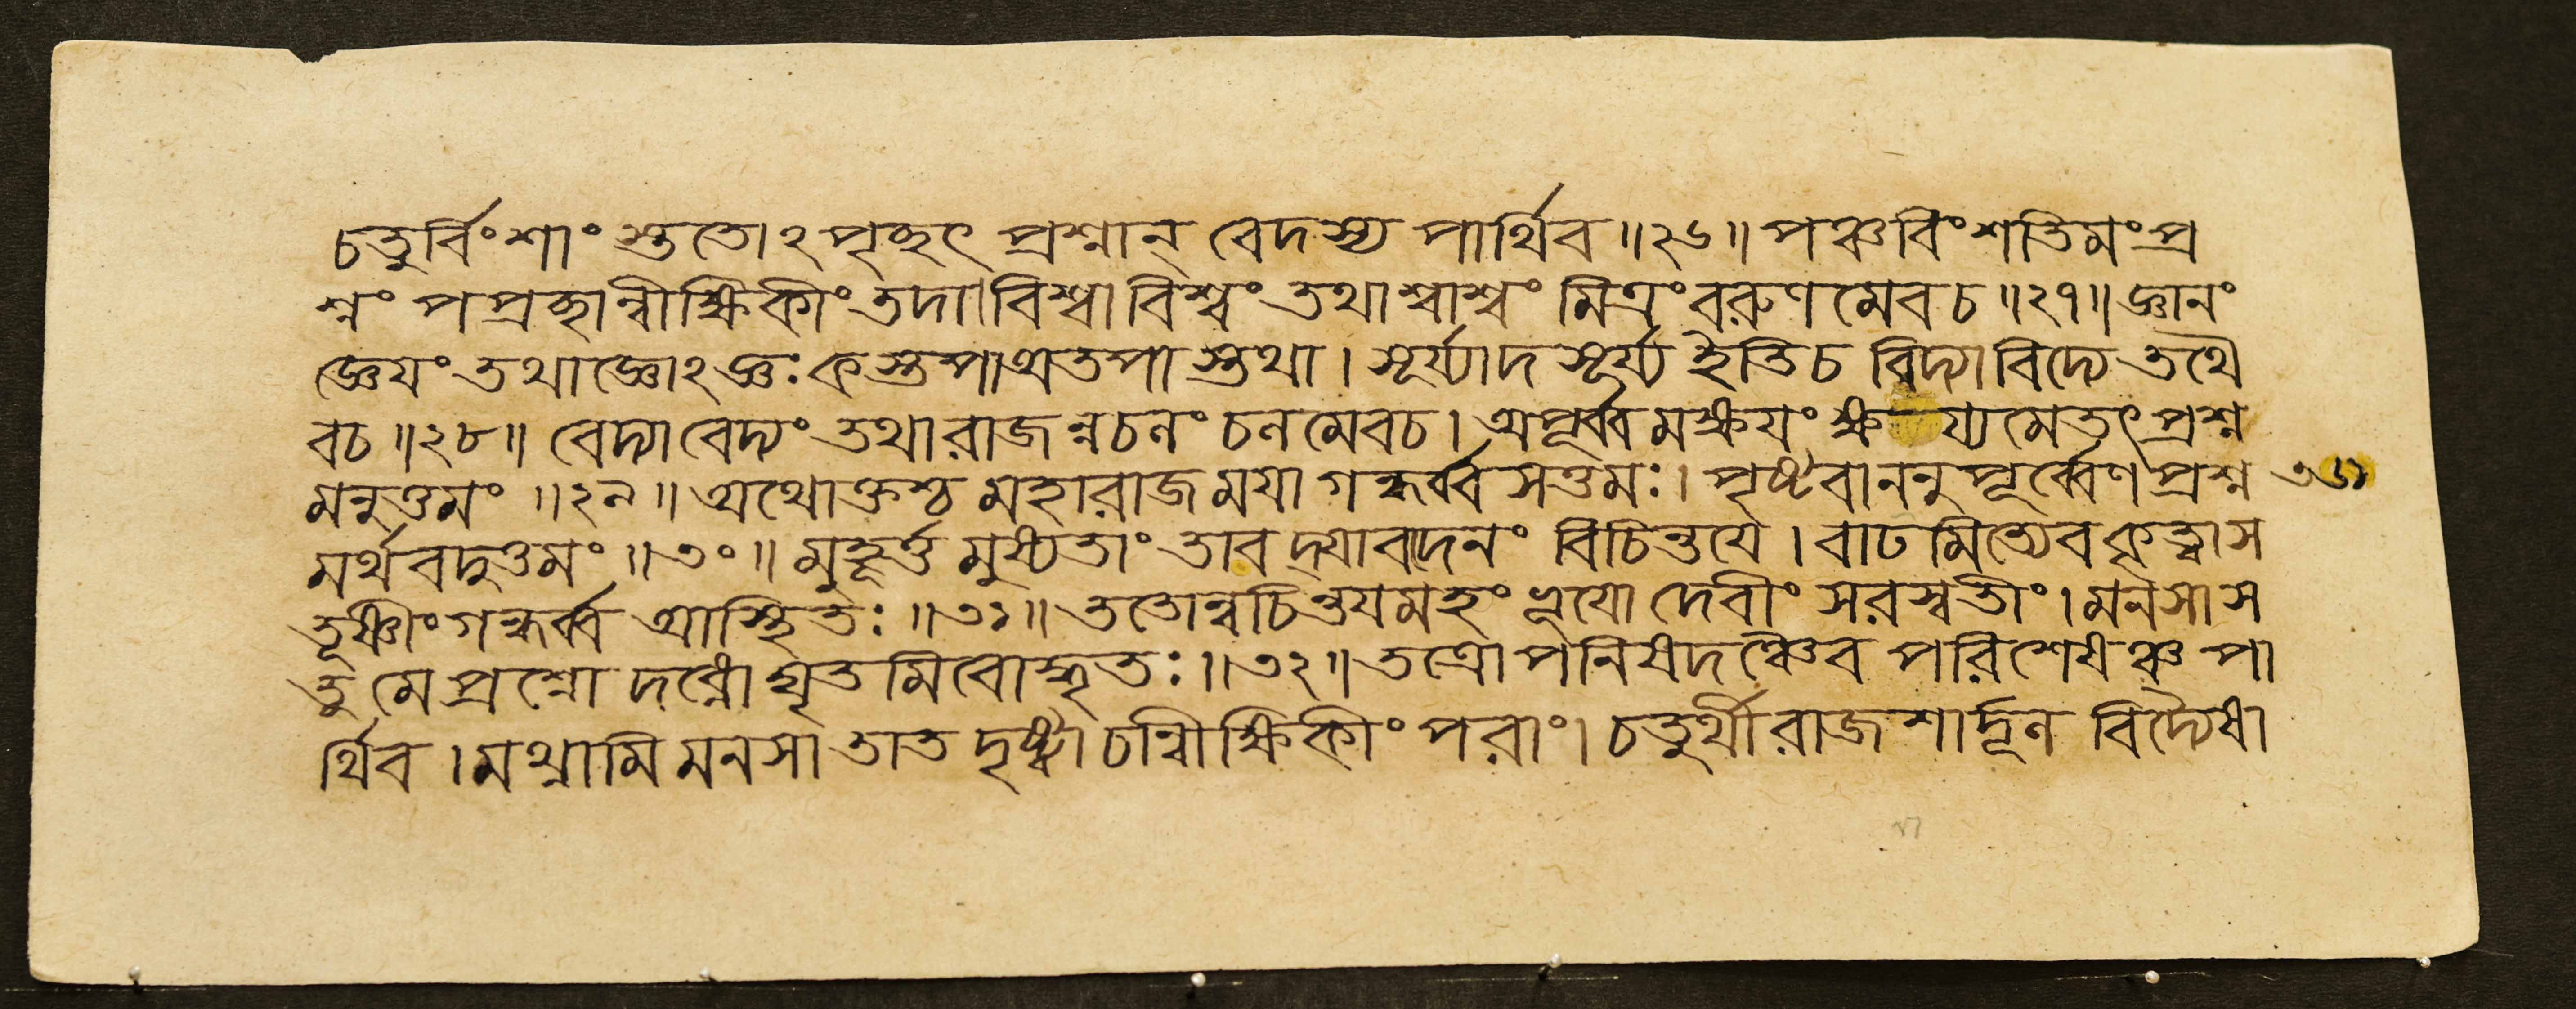 চতুর্বিংশাং স্ততোঽপৃচ্ছৎ প্রশ্নান্ বেদস্য পার্থিব ॥২৬॥ পঞ্চবিংশতিমং প্র
শ্নং পপ্রচ্ছান্বীক্ষিকীং তদা। বিশ্বাবিশ্বং তথাশ্বাশ্বং মিত্রং বরুণমেবচ ॥২৭॥ জ্ঞানং
জ্ঞেয়ং তথাজ্ঞোঽজ্ঞঃ কস্তপা অতপা স্তথা। সূর্য্যাদ সূর্য্য ইতিচ বিদ্যাবিদ্যে তথৈ
বচ ॥২৮॥ বেদ্যাবেদ্যং তথারাজন্নচনং চনমেবচ। অপূর্ব্বমক্ষয়ং ক্ষয্যমেতৎপ্রশ্ন
মনুত্তমং ॥২৯॥ অথোক্তশ্চ মহারাজময়া গন্ধর্ব্বসত্তমঃ। পৃষ্টবাননুপূর্ব্বেণ প্রশ্ন
মর্থবদুত্তমং ॥৩০॥ মুহূর্ত্তমুষ্যতাং তাবদ্যাবদেনং বিচিন্তয়ে। বাঢ়মিত্যেব কৃত্বাস
তূষ্ণীংগন্ধর্ব্ব আস্থিতঃ ॥৩১॥ ততোন্বচিন্তয়মহং ভূয়ো দেবীং সরস্বতীং। মনসাস
তু মে প্রশ্নো দধ্নো ঘৃতমিবোদ্ধৃতঃ ॥৩২॥ তত্রোপনিষদঞ্চৈব পরিশেষঞ্চ পা
র্থিব। মথ্নামি মনসা তাত দৃষ্ট্বা চান্বীক্ষিকীং পরাং। চতুর্থী রাজশার্দ্দূল বিদ্যৈষা